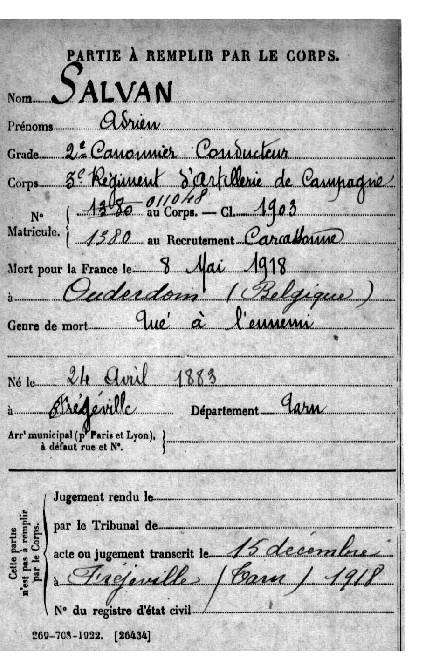 PARTIE À REMPLIR PAR LE CORPS.
Nom SALVAN
Prénoms Adrien
Grade 2e Canonnier Conducteur
Corps 3e Régiment d'Artillerie de Campagne
N° Matricule. { 1380 011048 au Corps. — Cl. 1903
1380 au Recrutement Carcassonne
Mort pour la France le 8 Mai 1918
à Ouderdom (Belgique)
Genre de mort Tué à l'ennemi
Né le 24 Avril 1883
à Fréjéville Département Tarn
Arr' municipal (p' Paris et Lyon), à défaut rue et N°.
Cette partie n'est pas à remplir par le Corps.
Jugement rendu le
par le Tribunal de
acte ou jugement transcrit le 15 décembre
à Fréjeville (Tarn) 1918
N° du registre d'état civil
269-708-1922. [26434]